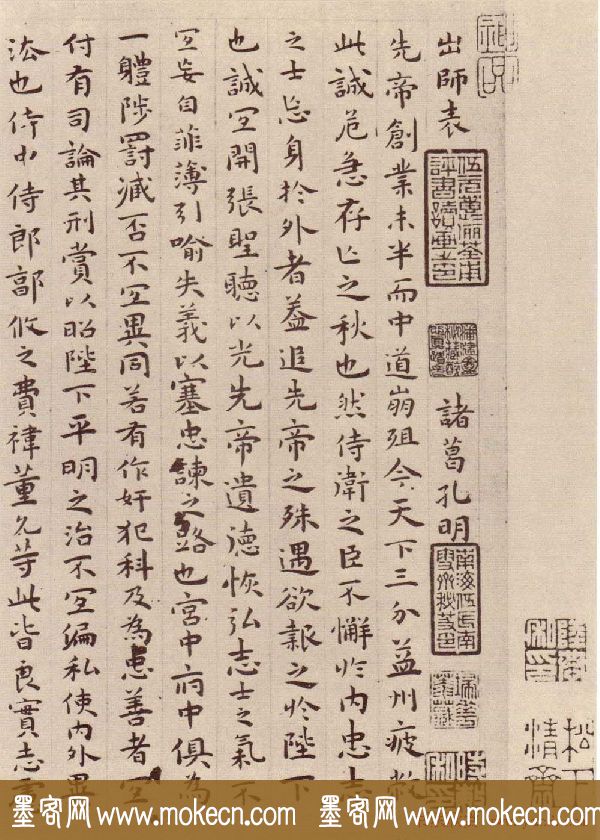 出師表 諸葛孔明
先帝創業未半而中道崩殂今天下三分益州疲弊
此誠危急存亡之秋也然侍衛之臣不懈於內忠志
之士忘身於外者蓋追先帝之殊遇欲報之於陛下
也誠宜開張聖聽以光先帝遺德恢弘志士之氣不
宜妄自菲薄引喻失義以塞忠諫之路也宮中府中俱為
一體陟罰臧否不宜異同若有作奸犯科及為忠善者宜
付有司論其刑賞以昭陛下平明之治不宜偏私使內外異
法也侍中侍郎郭攸之費禕董允等此皆良實志
墨客网 www.mokecn.com 墨客网 www.mokecn.com